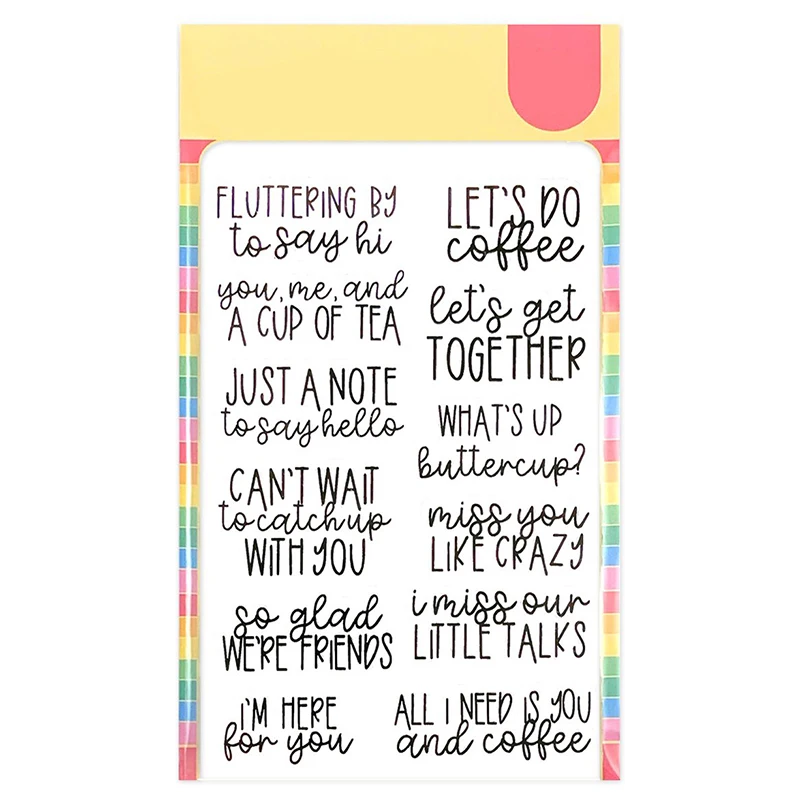 FLUTTERING BY
to say hi
you, me, and
A CUP OF TEA
JUST A NOTE
to say hello
CAN'T WAIT
to catch up
WITH YOU
so glad
WE'RE FRIENDS
I'M HERE
for you
LET'S DO
coffee
let's get
TOGETHER
WHAT'S UP
buttercup?
miss you
LIKE CRAZY
i miss our
LITTLE TALKS
ALL I NEED IS YOU
and coffee